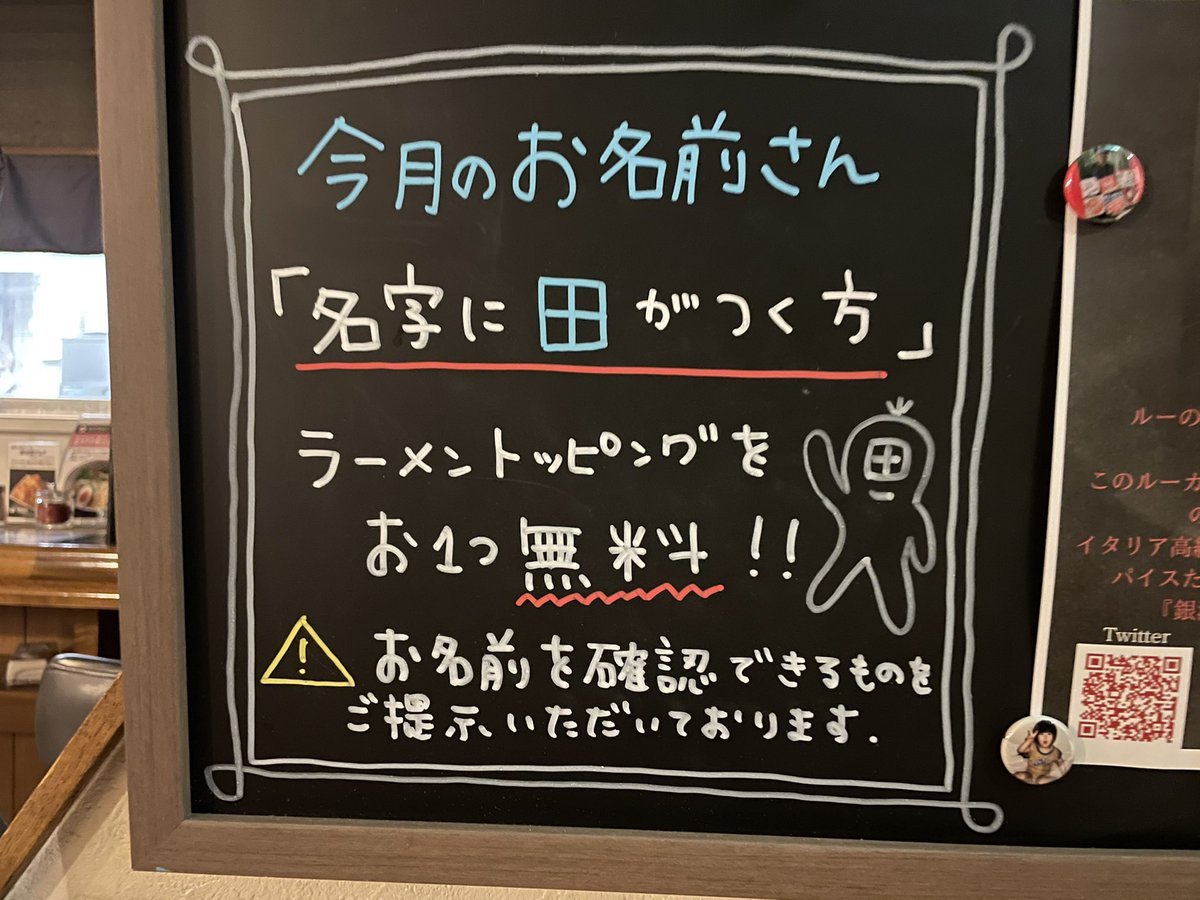 今月のお名前さん
「名字に田がつく方」
ラーメントッピングを
お1つ無料!!
田
! お名前を確認できるものを
ご提示いただいております.
ルーの
このルーカ
の
イタリア高級
パイスた
『銀
Twitter